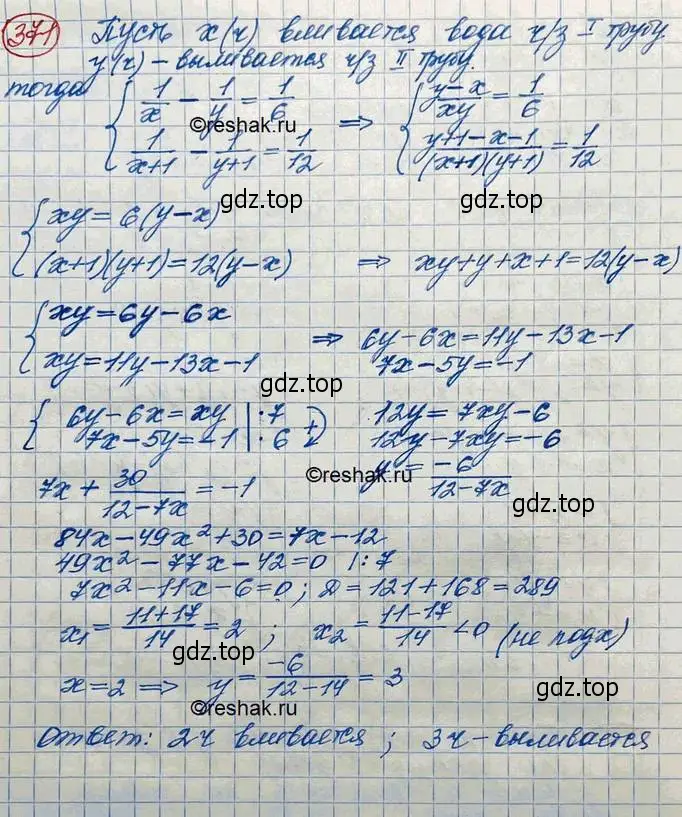 371 Пусть x(ч) вливается вода ч/з I трубу
y(ч) – выливается ч/з II трубу.
тогда { 1/x − 1/y = 1/6 ⇒ { (y−x)/xy = 1/6
1/(x+1) − 1/(y+1) = 1/12 (y+1−x−1)/((x+1)(y+1)) = 1/12
©reshak.ru
gdz.top gdz.top
{ xy = 6(y−x)
(x+1)(y+1) = 12(y−x) ⇒ xy+y+x+1 = 12(y−x)
{ xy = 6y−6x
xy = 11y−13x−1 ⇒ 6y−6x = 11y−13x−1
7x−5y = −1
gdz.top
{ 6y−6x = xy | ·7 12y = 7xy−6
7x−5y = −1 | ·6 + 12y−7xy = −6
©reshak.ru
7x + 30/(12−7x) = −1 y = −6/(12−7x)
gdz.top
84x−49x²+30 = 7x−12
49x²−77x−42 = 0 |:7
7x²−11x−6=0; D = 121+168 = 289
x₁ = (11+17)/14 = 2; x₂ = (11−17)/14 <0 (не подх)
gdz.top
x=2 ⇒ y = −6/(12−14) = 3
gdz.top
©reshak.ru
Ответ: 2ч вливается; 3ч – выливается
gdz.top gdz.top